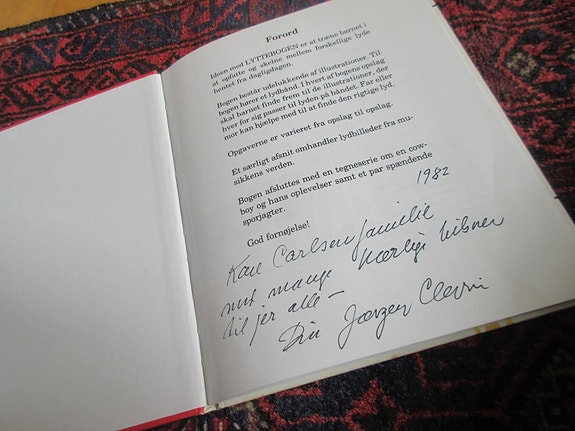 Forord
Ideen med LYTTEBOGEN er at træne barnet i
at opfatte og skelne mellem forskellige lyde
hentet fra dagligdagen.
Bogen består udelukkende af illustrationer. Til
bogen hører et lydbånd. I hvert af bogens opslag
skal barnet finde frem til de illustrationer, der
hver for sig passer til lyden på båndet. Far eller
mor kan hjælpe med til at finde den rigtige lyd.
Opgaverne er varieret fra opslag til opslag.
Et særligt afsnit omhandler lydbilleder fra mu-
sikkens verden.
Bogen afsluttes med en tegneserie om en cow-
boy og hans oplevelser samt et par spændende
sporjagter.
God fornøjelse!
1982
Kære Carlsen familie
med mange kærlige hilsner
til jer alle –
Din Jørgen Clevin